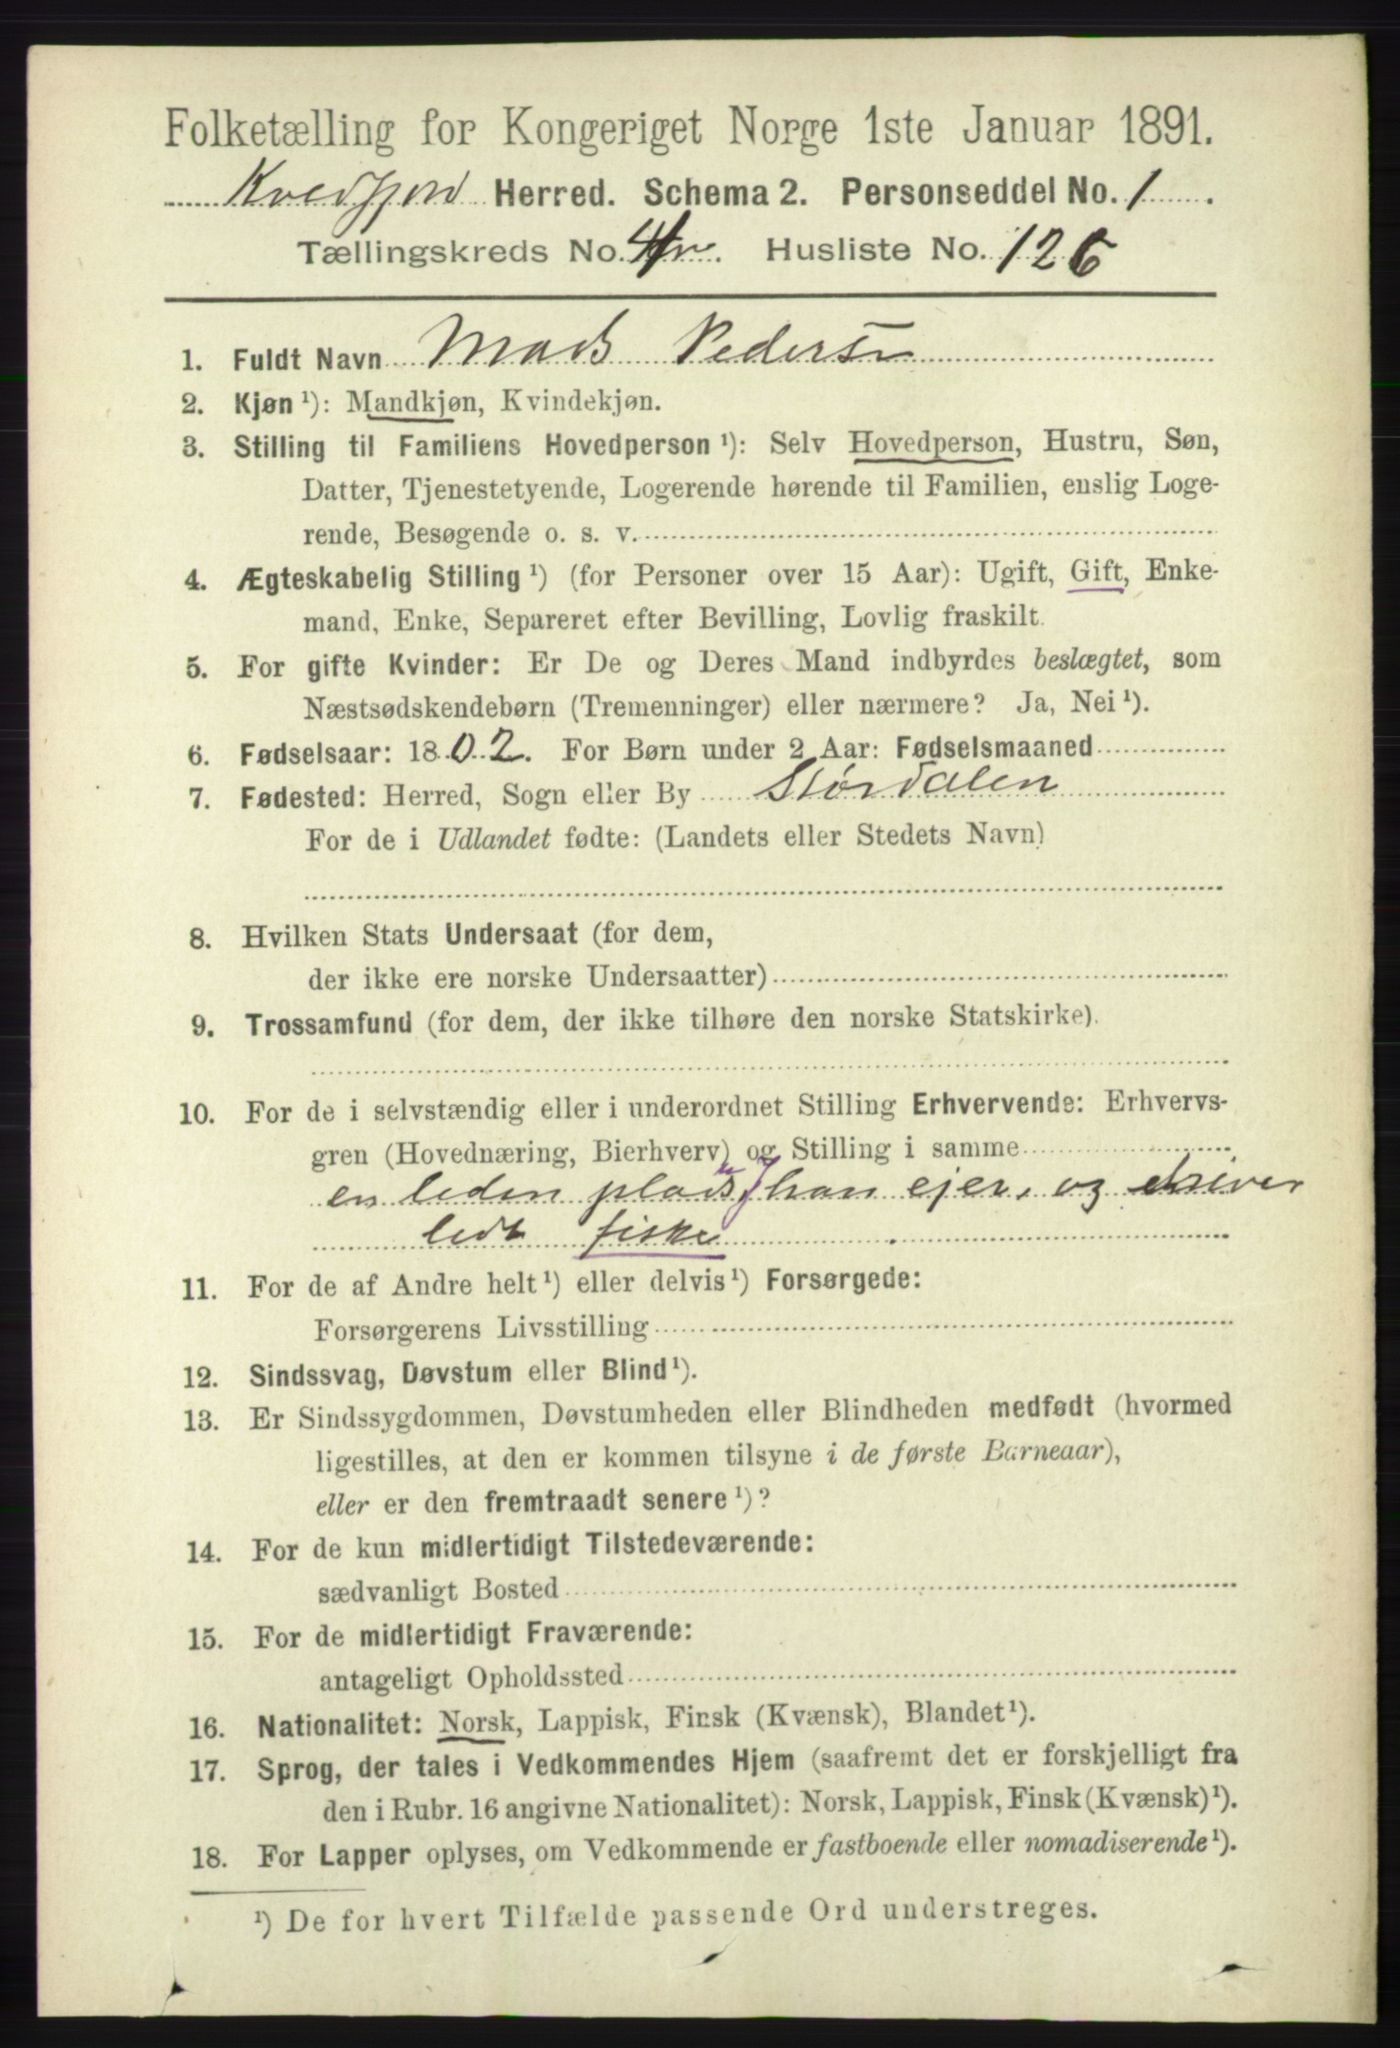 Folketælling for Kongeriget Norge 1ste Januar 1891.
Kvedfjord Herred. Schema 2. Personseddel No. 1.
Tællingskreds No. 4. Husliste No. 126
1. Fuldt Navn Mads Pedersen
2. Kjøn ¹): Mandkjøn, Kvindekjøn.
3. Stilling til Familiens Hovedperson ¹): Selv Hovedperson, Hustru, Søn,
Datter, Tjenestetyende, Logerende hørende til Familien, enslig Loge-
rende, Besøgende o. s. v.
4. Ægteskabelig Stilling ¹) (for Personer over 15 Aar): Ugift, Gift, Enke-
mand, Enke, Separeret efter Bevilling, Lovlig fraskilt.
5. For gifte Kvinder: Er De og Deres Mand indbyrdes beslægtet, som
Næstsødskendebørn (Tremenninger) eller nærmere? Ja, Nei ¹).
6. Fødselsaar: 1802. For Børn under 2 Aar: Fødselsmaaned
7. Fødested: Herred, Sogn eller By Størdalen
For de i Udlandet fødte: (Landets eller Stedets Navn)
8. Hvilken Stats Undersaat (for dem,
der ikke ere norske Undersaatter)
9. Trossamfund (for dem, der ikke tilhøre den norske Statskirke).
10. For de i selvstændig eller i underordnet Stilling Erhvervende: Erhvervs-
gren (Hovednæring, Bierhverv) og Stilling i samme
en leden plads han ejer, og driver
lidt fiske
11. For de af Andre helt ¹) eller delvis ¹) Forsørgede:
Forsørgerens Livsstilling
12. Sindssvag, Døvstum eller Blind ¹).
13. Er Sindssygdommen, Døvstumheden eller Blindheden medfødt (hvormed
ligestilles, at den er kommen tilsyne i de første Barneaar),
eller er den fremtraadt senere ¹)?
14. For de kun midlertidigt Tilstedeværende:
sædvanligt Bosted
15. For de midlertidigt Fraværende:
antageligt Opholdssted
16. Nationalitet: Norsk, Lappisk, Finsk (Kvænsk), Blandet ¹).
17. Sprog, der tales i Vedkommendes Hjem (saafremt det er forskjelligt fra
den i Rubr. 16 angivne Nationalitet): Norsk, Lappisk, Finsk (Kvænsk) ¹).
18. For Lapper oplyses, om Vedkommende er fastboende eller nomadiserende ¹).
¹) De for hvert Tilfælde passende Ord understreges.